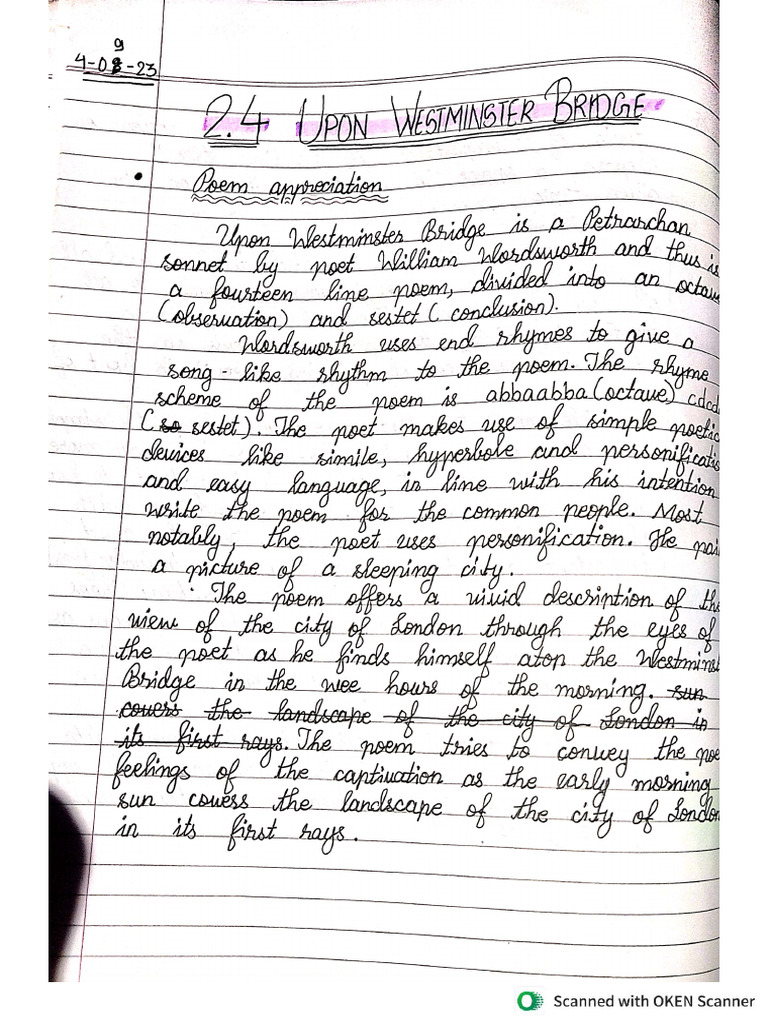 9
4-08-23
2.4 UPON WESTMINSTER BRIDGE
Poem appreciation
Upon Westminster Bridge is a Petrarchan
sonnet by poet William Wordsworth and thus is
a fourteen line poem, divided into an octave
(observation) and sestet (conclusion).
Wordsworth uses end rhymes to give a
song-like rhythm to the poem. The rhyme
scheme of the poem is abbaabba (octave) cdcd
(so sestet). The poet makes use of simple poetic
devices like simile, hyperbole and personificatio
and easy language, in line with his intention
write the poem for the common people. Most
notably, the poet uses personification. He pai
a picture of a sleeping city.
The poem offers a vivid description of the
view of the city of London through the eyes of
the poet as he finds himself atop the Westmins
Bridge in the wee hours of the morning. sun
covers the landscape of the city of London in
its first rays. The poem tries to convey the poe
feelings of the captivation as the early morning
sun covess the landscape of the city of London
in its first rays.
Scanned with OKEN Scanner